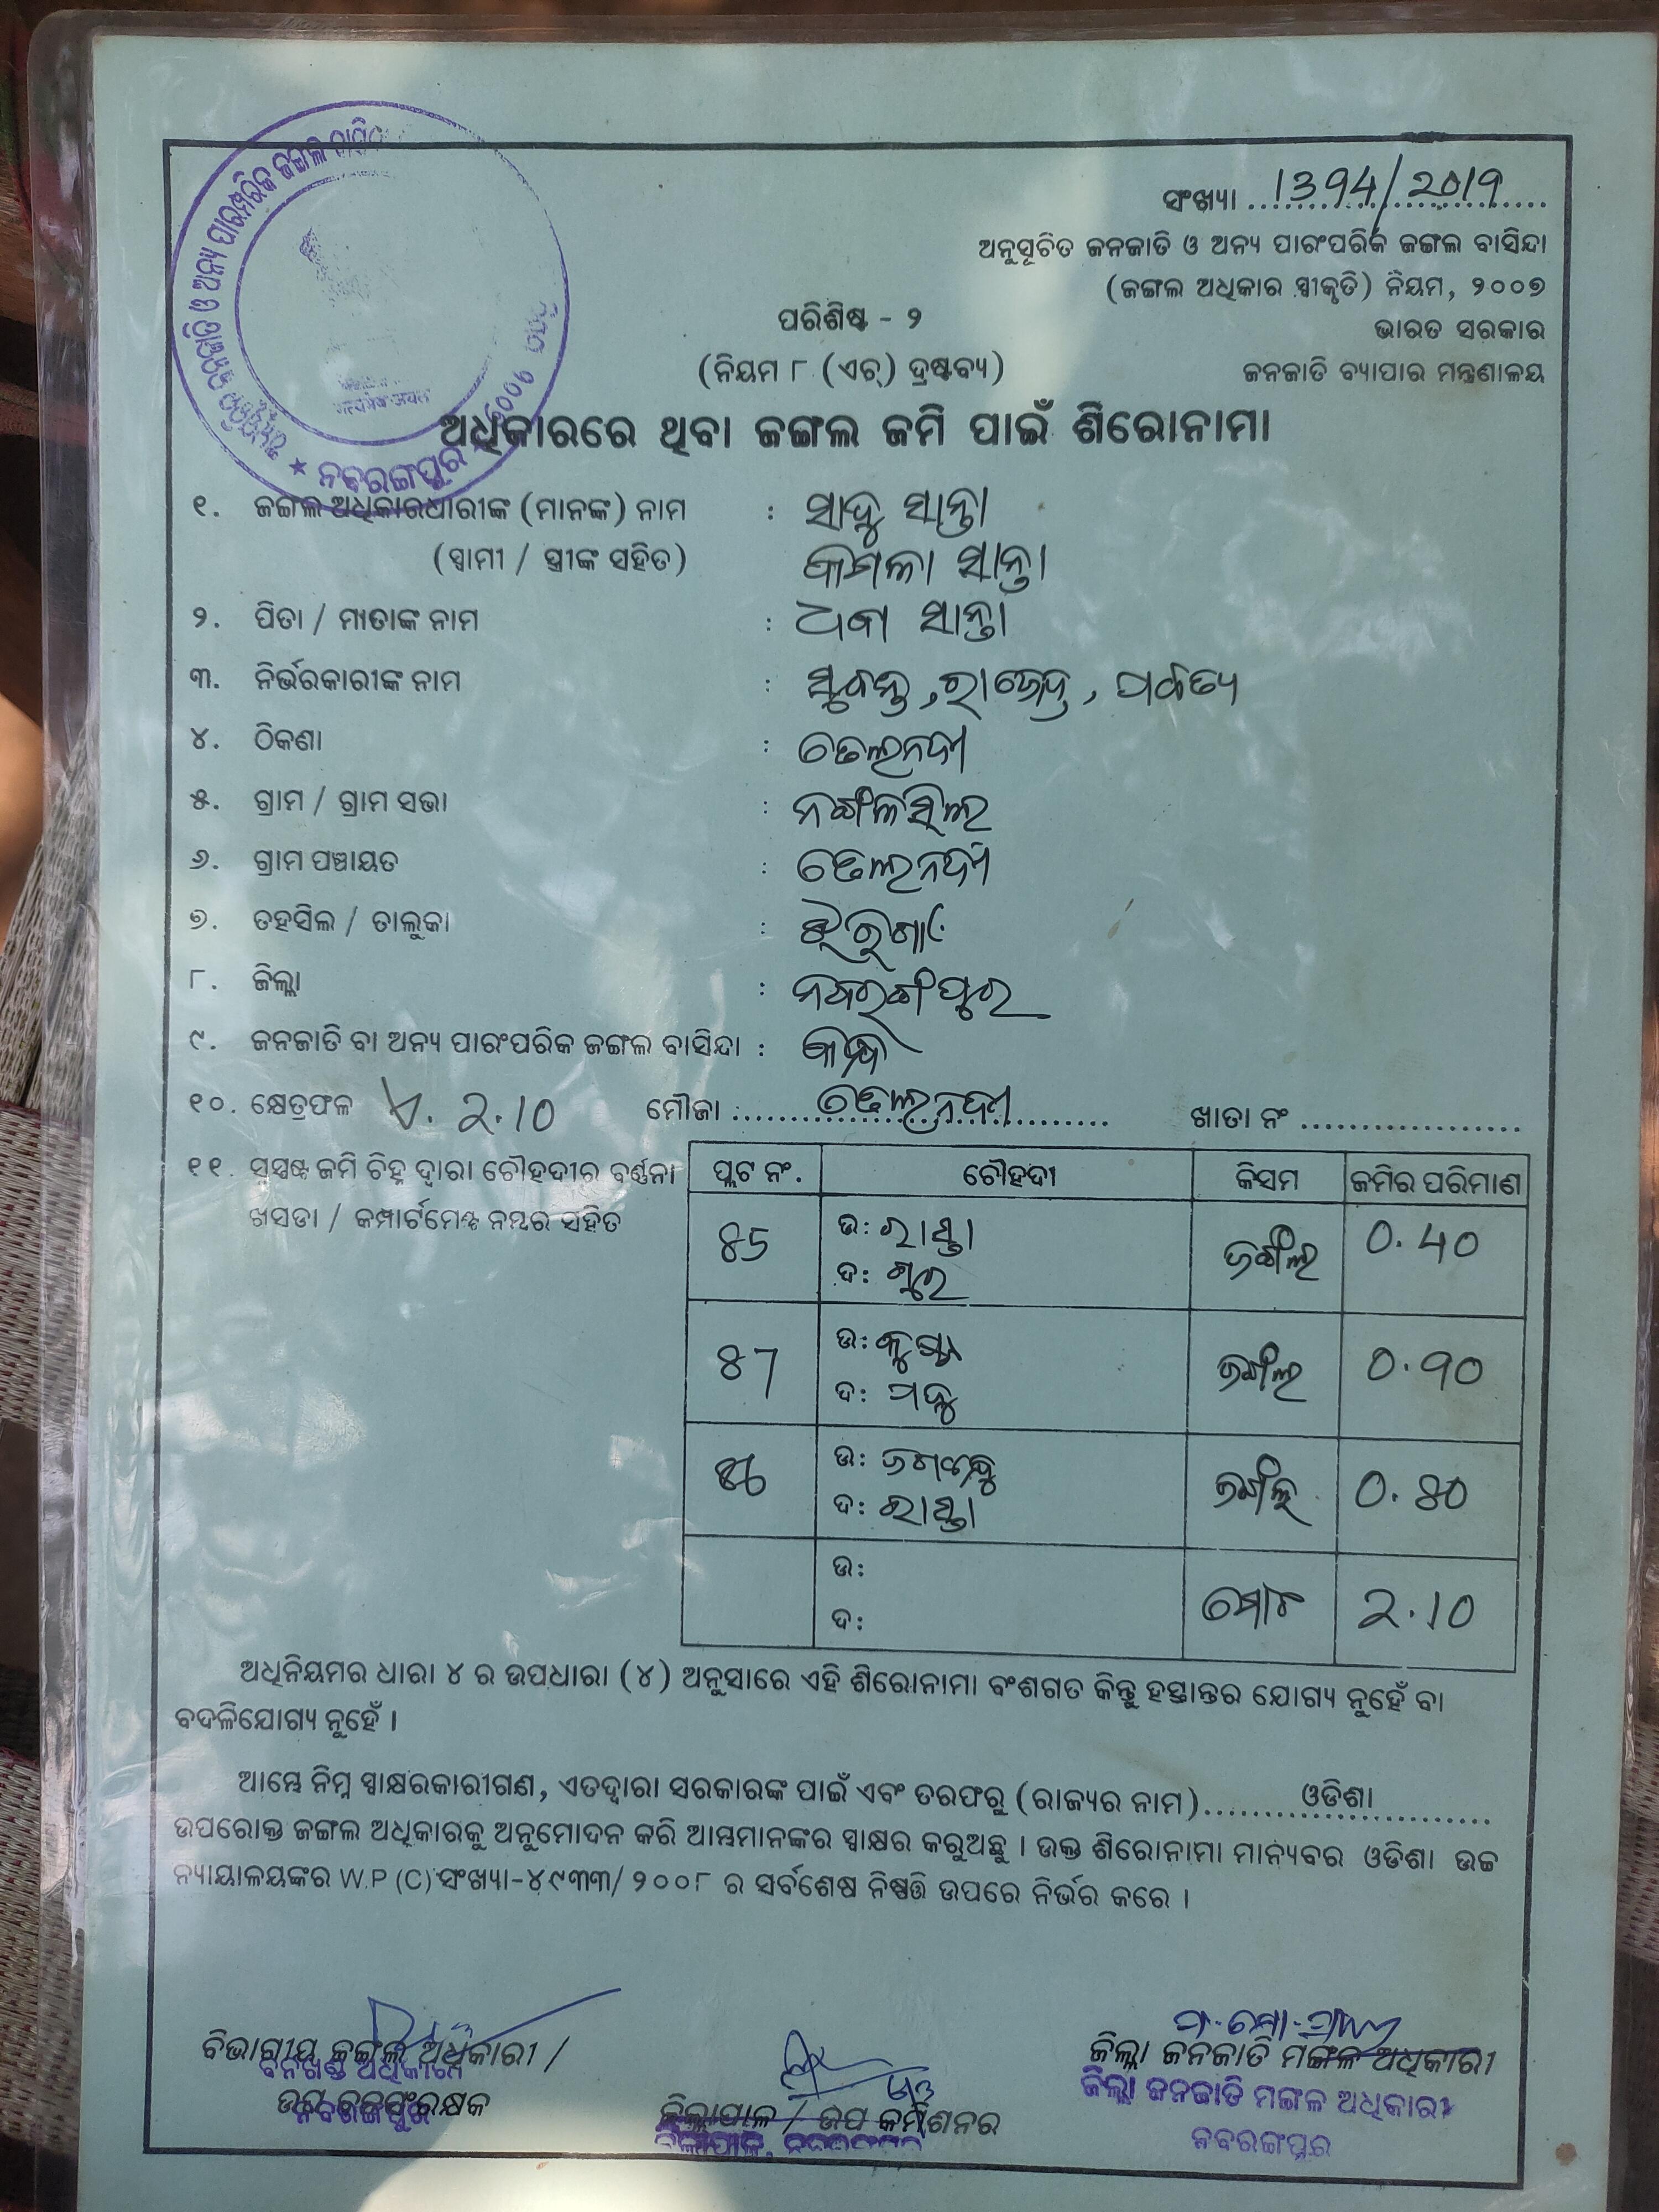 ସଂଖ୍ୟା 1394/2019
ଅନୁସୂଚିତ ଜନଜାତି ଓ ଅନ୍ୟ ପାରଂପରିକ ଜଙ୍ଗଲ ବାସିନ୍ଦା
(ଜଙ୍ଗଲ ଅଧିକାର ସ୍ୱୀକୃତି) ନିୟମ, ୨୦୦୭
ପରିଶିଷ୍ଟ - ୨
ଭାରତ ସରକାର
(ନିୟମ ୮ (ଏଚ୍) ଦ୍ରଷ୍ଟବ୍ୟ)
ଜନଜାତି ବ୍ୟାପାର ମନ୍ତ୍ରଣାଳୟ
ଅଧିକାରରେ ଥିବା ଜଙ୍ଗଲ ଜମି ପାଇଁ ଶିରୋନାମା
ନବରଙ୍ଗପୁର
୧. ଜଙ୍ଗଲ ଅଧିକାରଧାରୀଙ୍କ (ମାନଙ୍କ) ନାମ : ସାଦୁ ସାନ୍ତା
(ସ୍ୱାମୀ / ସ୍ତ୍ରୀଙ୍କ ସହିତ) କମଳା ସାନ୍ତା
୨. ପିତା / ମାତାଙ୍କ ନାମ : ଧବା ସାନ୍ତା
୩. ନିର୍ଭରକାରୀଙ୍କ ନାମ : ସୁକାନ୍ତ, ରାଜେନ୍ଦ୍ର,
୪. ଠିକଣା : ତେଲନଦୀ
୫. ଗ୍ରାମ / ଗ୍ରାମ ସଭା : ନଙ୍ଗଳସିଲ
୬. ଗ୍ରାମ ପଞ୍ଚାୟତ : ତେଲନଦୀ
୭. ତହସିଲ / ତାଲୁକା : ଝରିଗାଁ
୮. ଜିଲ୍ଲା : ନବରଙ୍ଗପୁର
୯. ଜନଜାତି ବା ଅନ୍ୟ ପାରଂପରିକ ଜଙ୍ଗଲ ବାସିନ୍ଦା : କନ୍ଧ
୧୦. କ୍ଷେତ୍ରଫଳ ଏ. 2.10 ମୌଜା ତେଲନଦୀ ଖାତା ନଂ
୧୧. ସୁସ୍ପଷ୍ଟ ଜମି ଚିହ୍ନ ଦ୍ୱାରା ଚୌହଦୀର ବର୍ଣ୍ଣନା
ଖସଡା / କମ୍ପାର୍ଟମେଣ୍ଟ ନମ୍ବର ସହିତ
ପ୍ଲଟ ନଂ. ଚୌହଦୀ କିସମ ଜମିର ପରିମାଣ
85 ଉ: ରାସ୍ତା ଜଙ୍ଗଲ 0.40
ଦ: ଶୁର
87 ଉ: ଜଙ୍ଗଲ 0.90
ଦ:
86 ଉ: ଜଙ୍ଗଲ 0.80
ଦ: ରାସ୍ତା
ଉ: ମୋଟ 2.10
ଦ:
ଅଧିନିୟମର ଧାରା ୪ ର ଉପଧାରା (୪) ଅନୁସାରେ ଏହି ଶିରୋନାମା ବଂଶଗତ କିନ୍ତୁ ହସ୍ତାନ୍ତର ଯୋଗ୍ୟ ନୁହେଁ ବା
ବଦଳିଯୋଗ୍ୟ ନୁହେଁ ।
ଆମ୍ଭେ ନିମ୍ନ ସ୍ୱାକ୍ଷରକାରୀଗଣ, ଏତଦ୍ଦ୍ୱାରା ସରକାରଙ୍କ ପାଇଁ ଏବଂ ତରଫରୁ (ରାଜ୍ୟର ନାମ) ଓଡିଶା
ଉପରୋକ୍ତ ଜଙ୍ଗଲ ଅଧିକାରକୁ ଅନୁମୋଦନ କରି ଆମ୍ଭମାନଙ୍କର ସ୍ୱାକ୍ଷର କରୁଅଛୁ । ଉକ୍ତ ଶିରୋନାମା ମାନ୍ୟବର ଓଡିଶା ଉଚ୍ଚ
ନ୍ୟାୟାଳୟଙ୍କର W.P (C) ସଂଖ୍ୟା-୪୯୩୩/୨୦୦୮ ର ସର୍ବଶେଷ ନିଷ୍ପତ୍ତି ଉପରେ ନିର୍ଭର କରେ ।
ବିଭାଗୀୟ ଜଙ୍ଗଲ ଅଧିକାରୀ /
ବନଖଣ୍ଡ ଅଧିକାରୀ
ଉପ ବନସଂରକ୍ଷକ
ନବରଙ୍ଗପୁର
ଜିଲ୍ଲାପାଳ / ଉପ କମିଶନର
ଜିଲ୍ଲାପାଳ, ନବରଙ୍ଗପୁର
ଜିଲ୍ଲା ଜନଜାତି ମଙ୍ଗଳ ଅଧିକାରୀ
ଜିଲ୍ଲା ଜନଜାତି ମଙ୍ଗଳ ଅଧିକାରୀ
ନବରଙ୍ଗପୁର